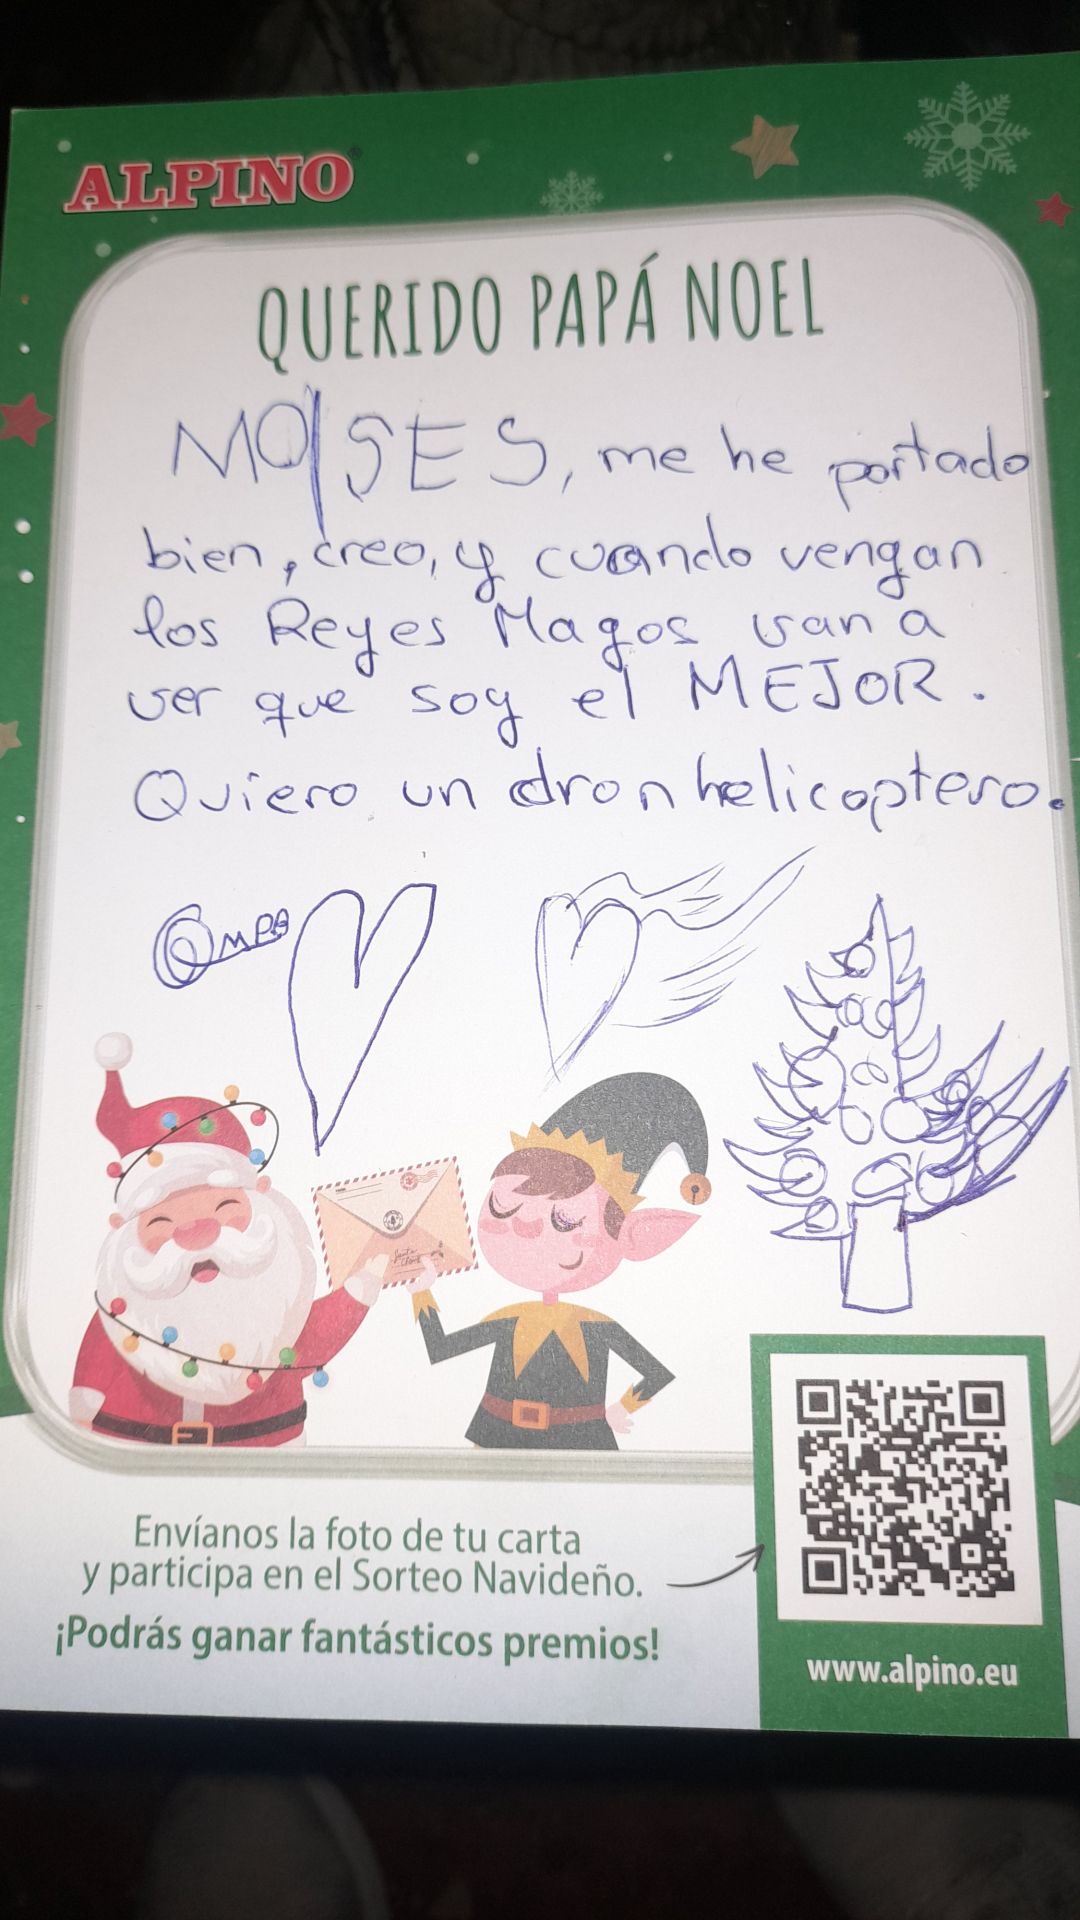 ALPINO
QUERIDO PAPÁ NOEL
MOISES, me he portado
bien, creo, y cuando vengan
los Reyes Magos van a
ver que soy el MEJOR.
Quiero un dron helicoptero.
Santa
Claus
Envíanos la foto de tu carta
y participa en el Sorteo Navideño.
¡Podrás ganar fantásticos premios!
www.alpino.eu